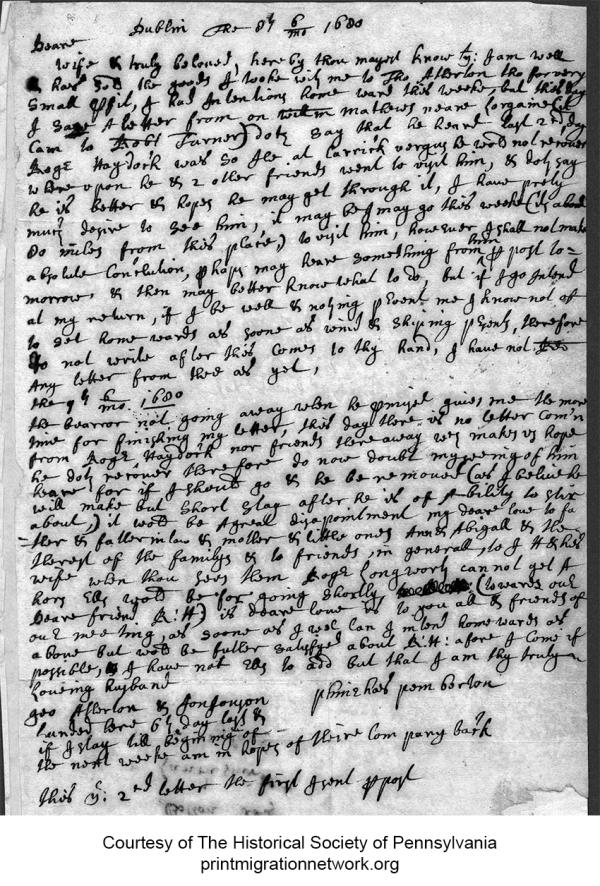 Dublin The 8th 6/mo 1680
Deare
wife & truly beloved, hereby thou mayst know yt: I am well
& have sold the goods I tooke with me to Tho Atherton tho for very
small pfit, I had Intentions home ward this weeke, but this day
I saw A letter from on mathews neare Lorgaine (it
cam to Robt Turner) doth say that he heard last 2nd day
Rogr Haydock was so ile at Carrick vergus he wod not recover
where vpon he & 2 other friends went to visit him, & doth say
he is better & hopes he may get through it, I have prety
much desire to see him, it may be I may go this weeke (its about
80 miles from this place,) to visit him, however I shall not make
absolute Conclution, phaps may heare something from him p post to=
morrow, & then may better know what to do, but if I go Intend
at my return, if I be well & nothing pvent me I know not of
to set home wards as soone as wind & shiping psents, therefore
do not write after this comes to thy hand, I have not
Any letter from thee as yet,
the 9th 6/mo 1680
the bearror not going away when he pmised gives me the more
time for finishing my letter, this day there is no letter Com'n
from Rogr Haydock nor friends thereaway wch makes vs hope
he doth recover therefore do now doubt my seeing of him
heare for if I should go & he be removed (as I belive he
will make but short stay after he is of Ability to stir
about,) it wod be A great disapointment my deare love to fa
=ther & father in law & mother & little ones Ann & Abigall & the
therest of the familys & to friends, in generall, to J H & his
wife when thou sees them Rogr Longworth cannot get A
hors Els wod be for going shortly (towards our
Deare friend R: H) is deare love is to you all & friends of
our meeting, as soone as I wel can I intend home wards as
above but wod be fuller satisfyed about R: H: afore I Come if
possible, I have not Els to add but that I am thy truly
Loveing husband
phinehas pemberton
Geo Atherton &
Landed here 6th day last &
if I stay till beginning of
the next weeke am in hopes of theire Company back
This ye: 2nd letter the first I sent p post
Courtesy of The Historical Society of Pennsylvania
printmigrationnetwork.org